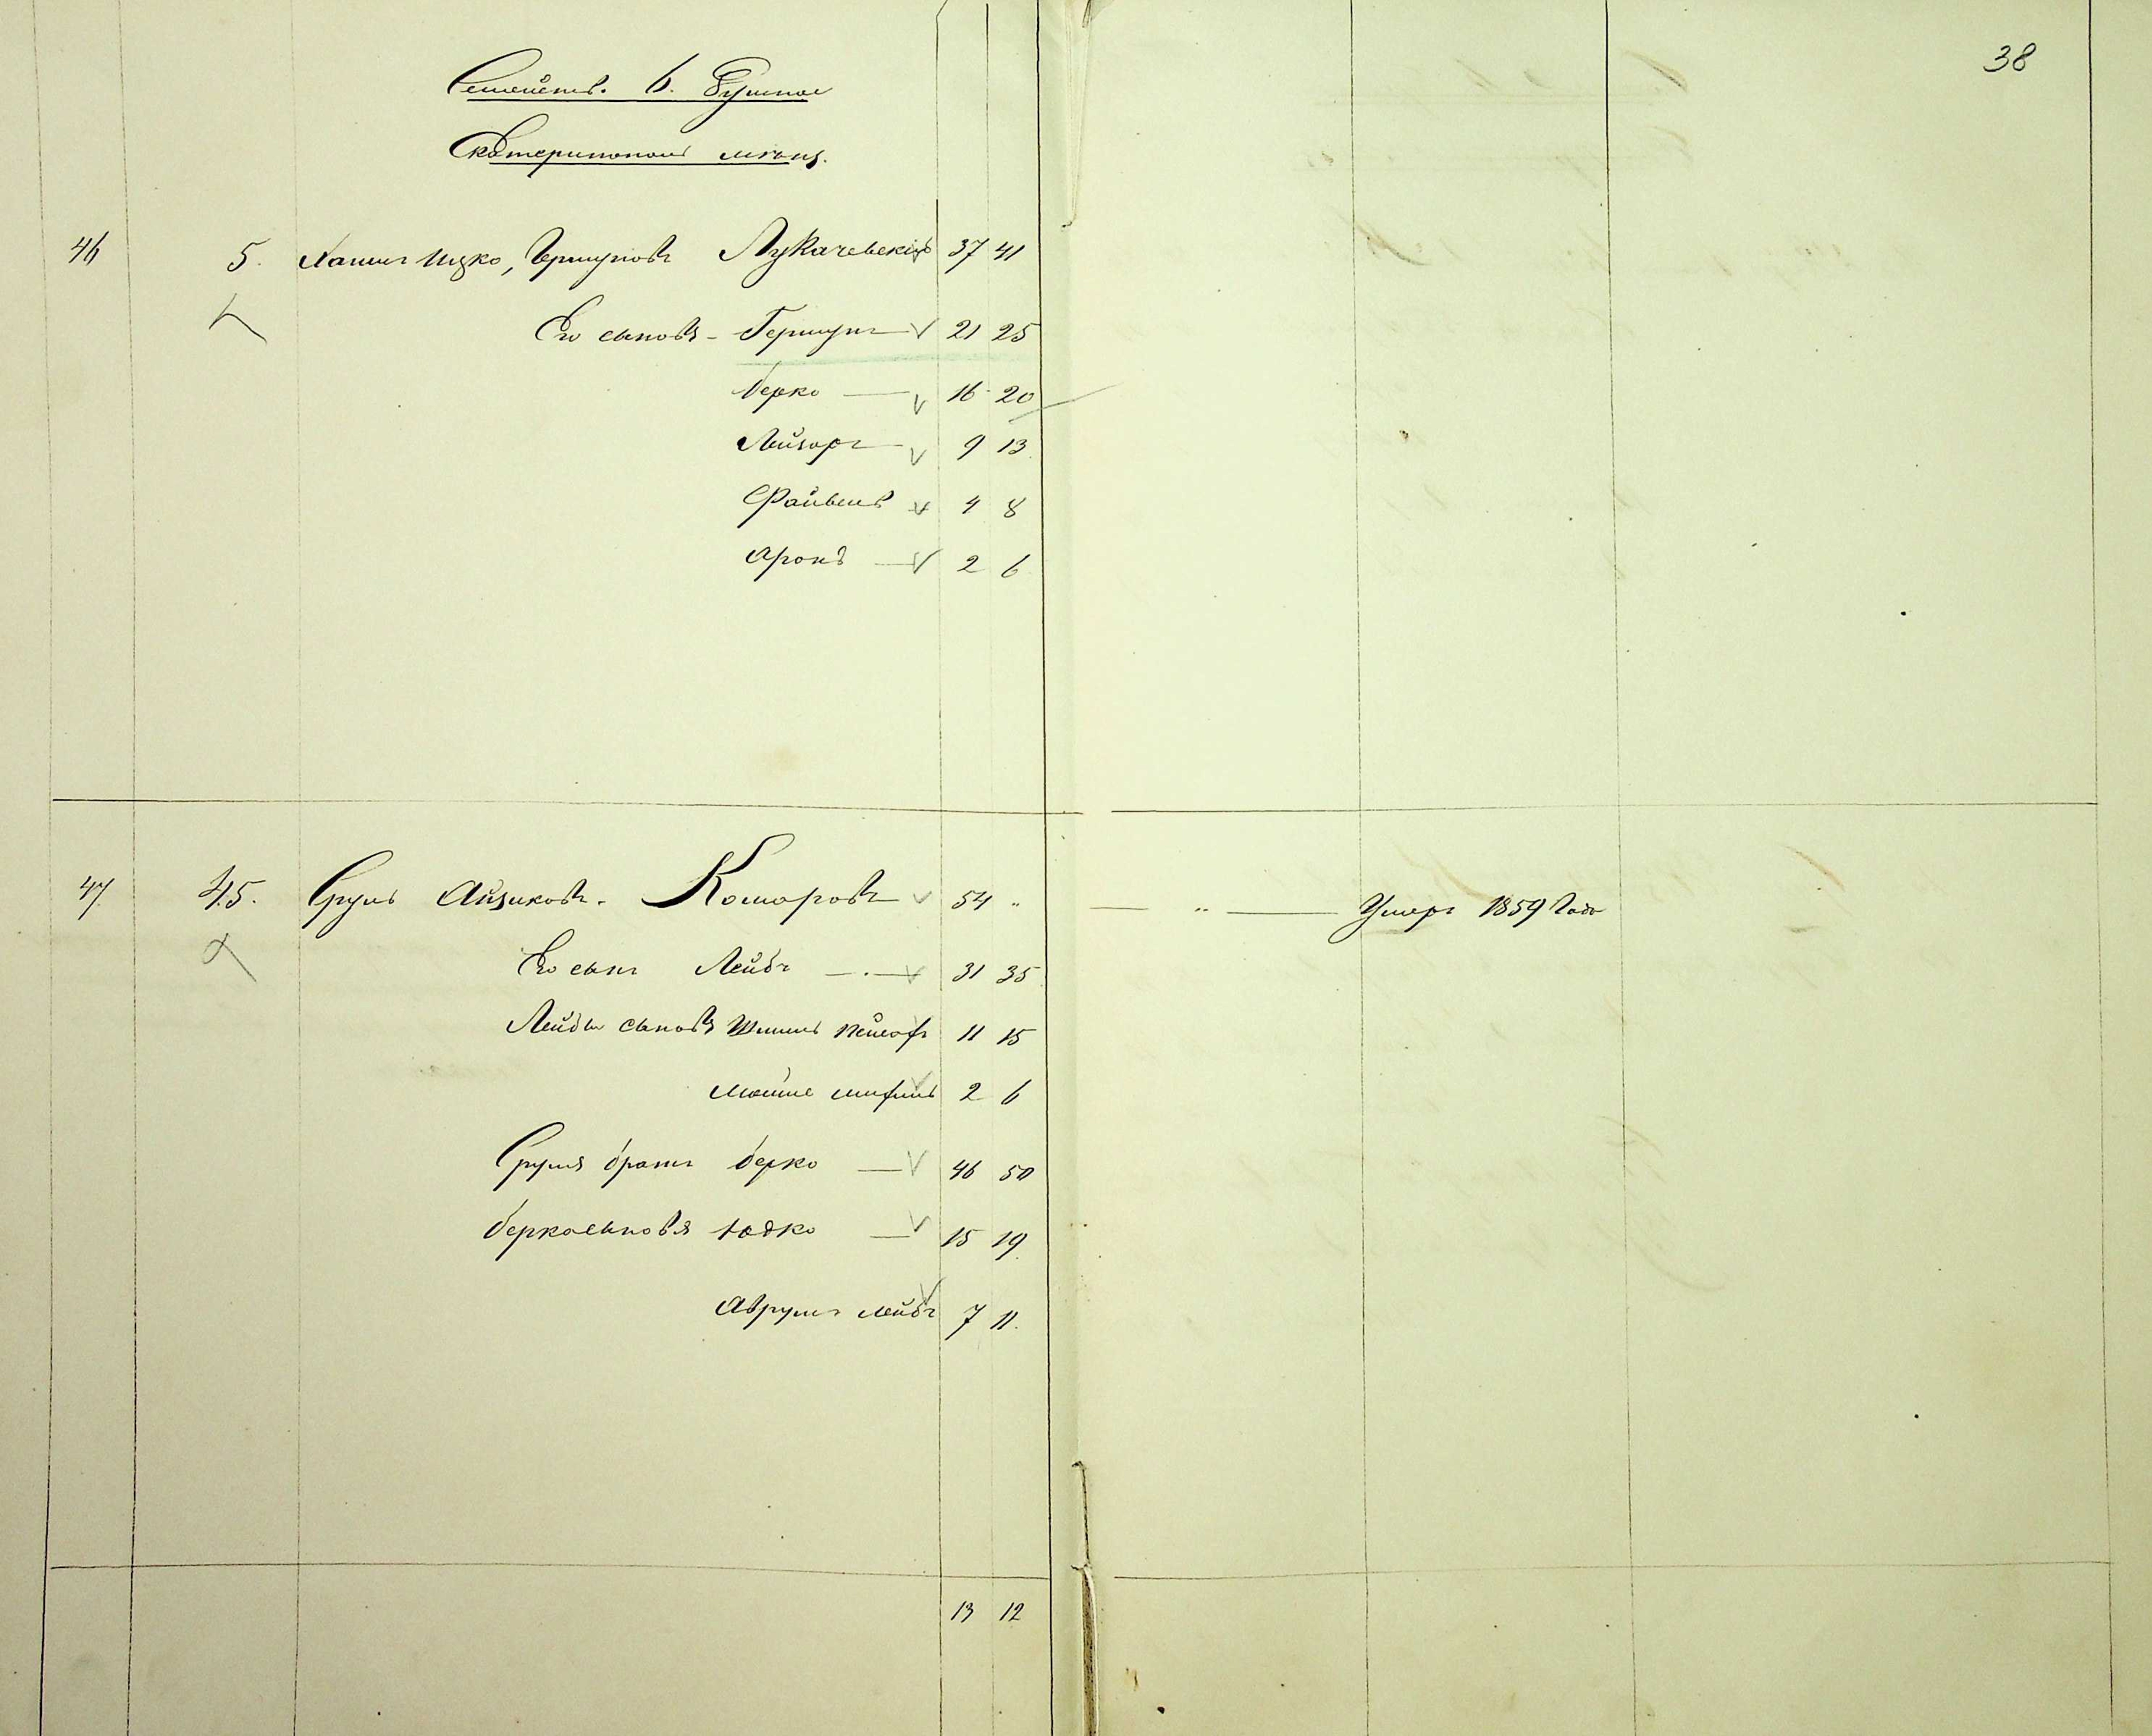 38
Семейств. 6. Душъ
Екатеринополь мѣщ.
46 5. Хаимъ Ицко, Гершуновъ Лукачевскій 37 41
Его сыновья - Гершунъ 21 25
Берко — 16 20
Лейзоръ 9 13
Файвель 4 8
Аронъ — 2 6
47 45. Сруль Айзиковъ - Комаровъ 54 " — " — Умеръ 1859 года
Его сынъ Лейбъ — 31 35
Лейбы сыновья 11 15
Мойше 2 6
Сруля братъ Берко — 46 50
Берко сыновья Юдко — 15 19
Аврумъ Лейбъ 7 11.
13 12